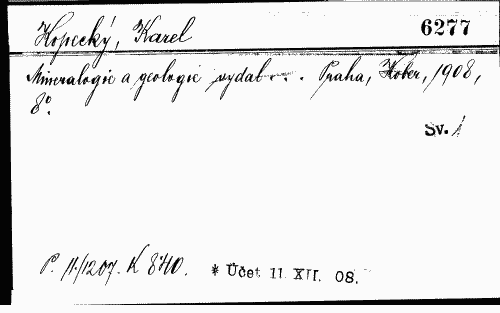 Kopecký, Karel
6277
Mineralogie a geologie vydal . . . Praha, Kober, 1908,
8°.
Sv. 1
P. 11./1207. K 8'40.
* Účet 11. XII. 08.